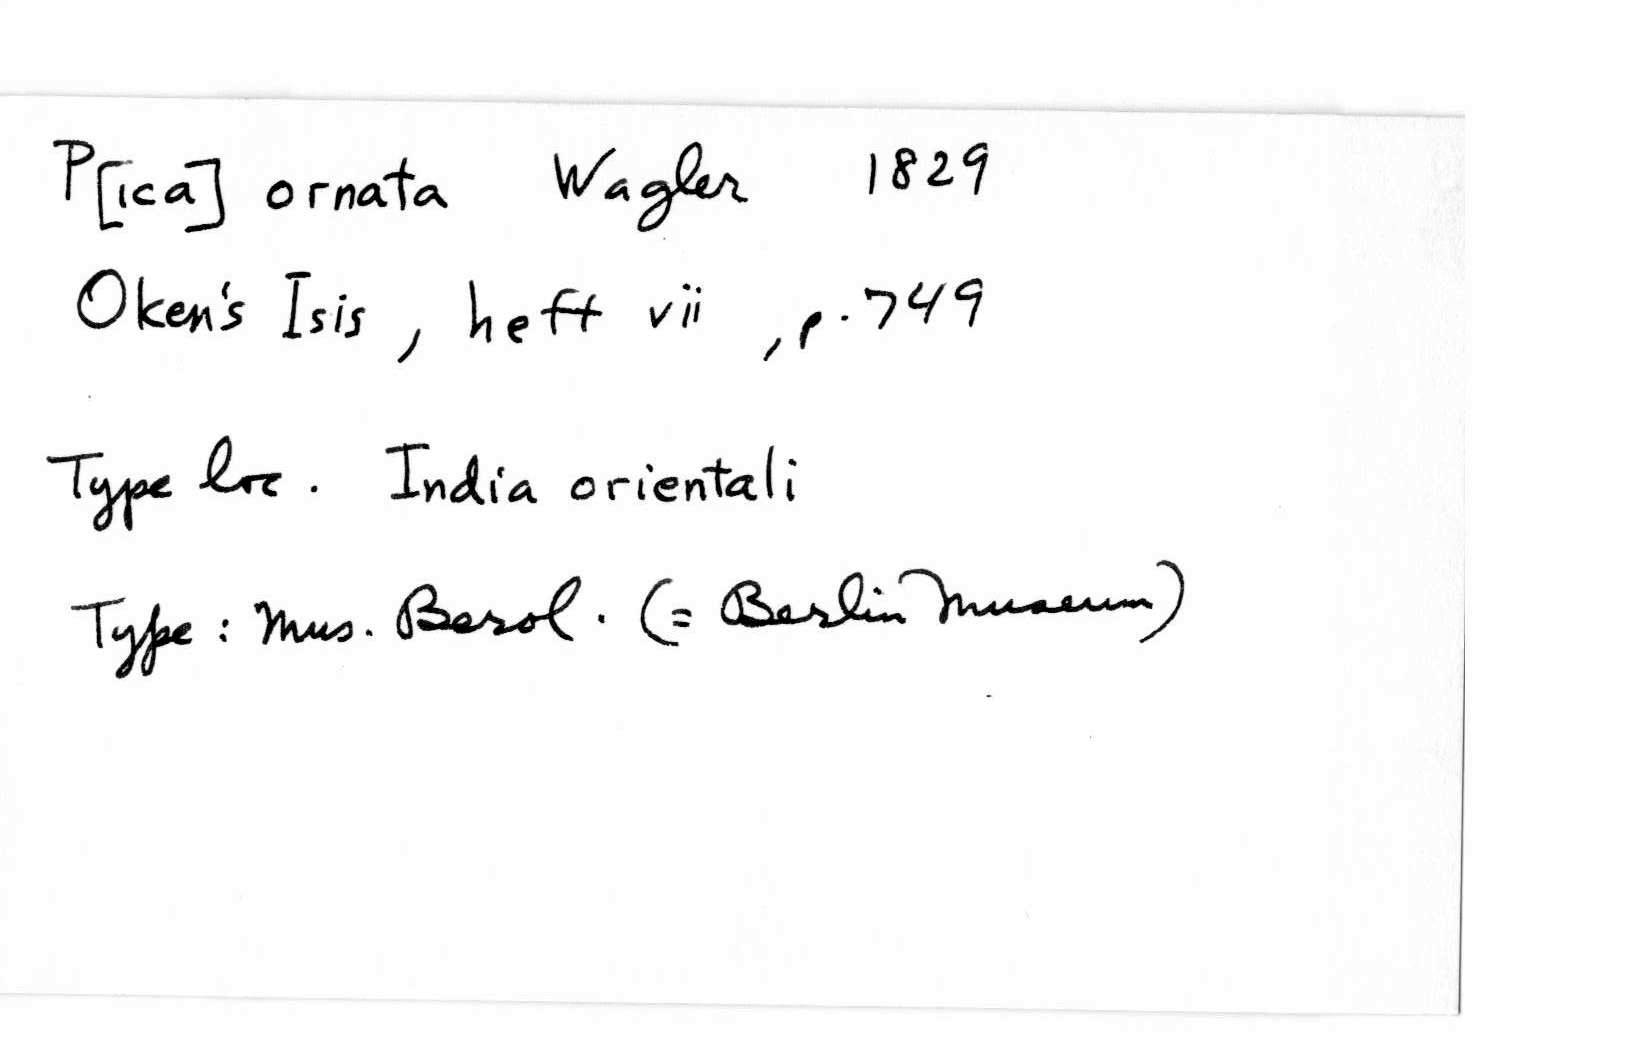 P[ica] ornata Wagler 1829
Oken's Isis, heft vii, p. 749
Type loc. India orientali
Type: Mus. Berol. (= Berlin Museum)